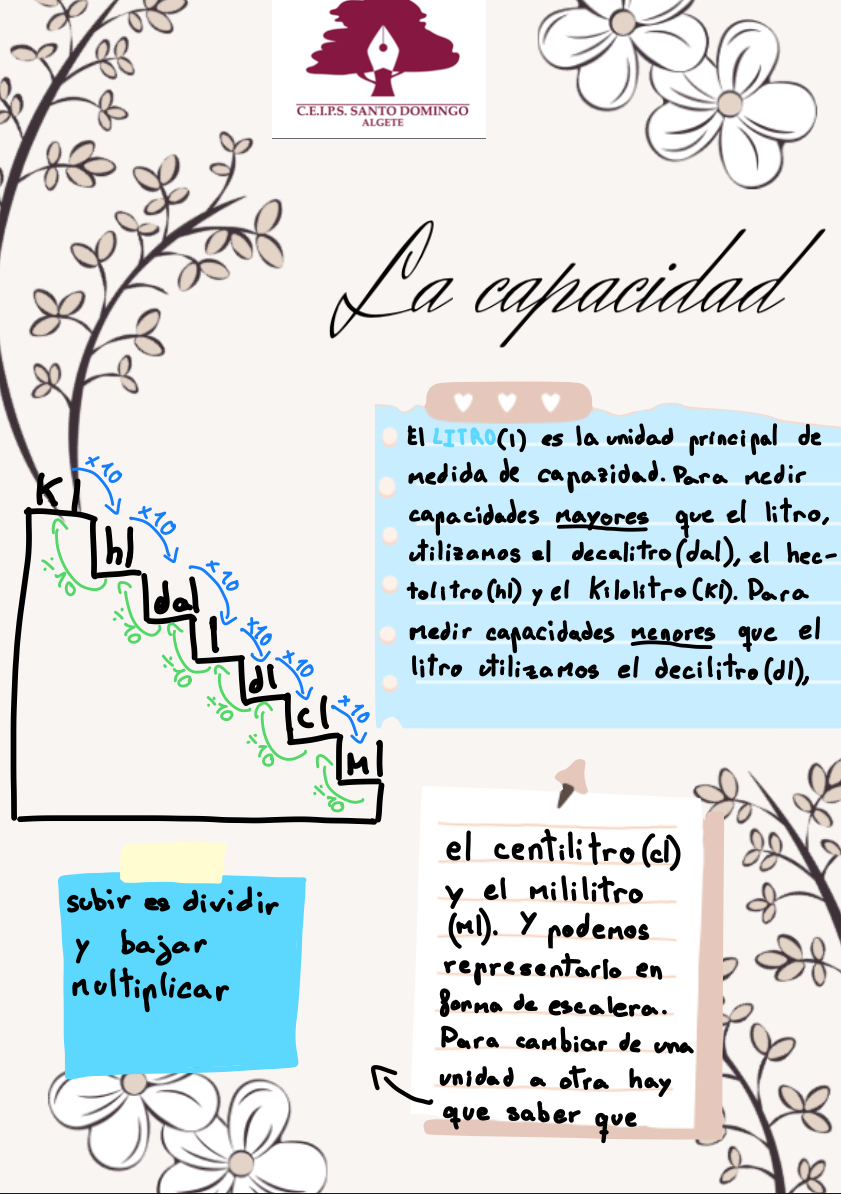 C.E.I.P.S. SANTO DOMINGO
ALGETE
La capacidad
El LITRO(l) es la unidad principal de
medida de capazidad. Para medir
capacidades mayores que el litro,
utilizamos el decalitro(dal), el hec-
tolitro(hl) y el Kilolitro(Kl). Para
medir capacidades menores que el
litro utilizamos el decilitro(dl),
Kl
x10
hl
x10
dal
x10
l
x10
dl
x10
cl
x10
Ml
÷10
÷10
÷10
÷10
÷10
÷10
el centilitro(cl)
y el mililitro
(Ml). Y podemos
representarlo en
forma de escalera.
Para cambiar de una
unidad a otra hay
que saber que
subir es dividir
y bajar
multiplicar